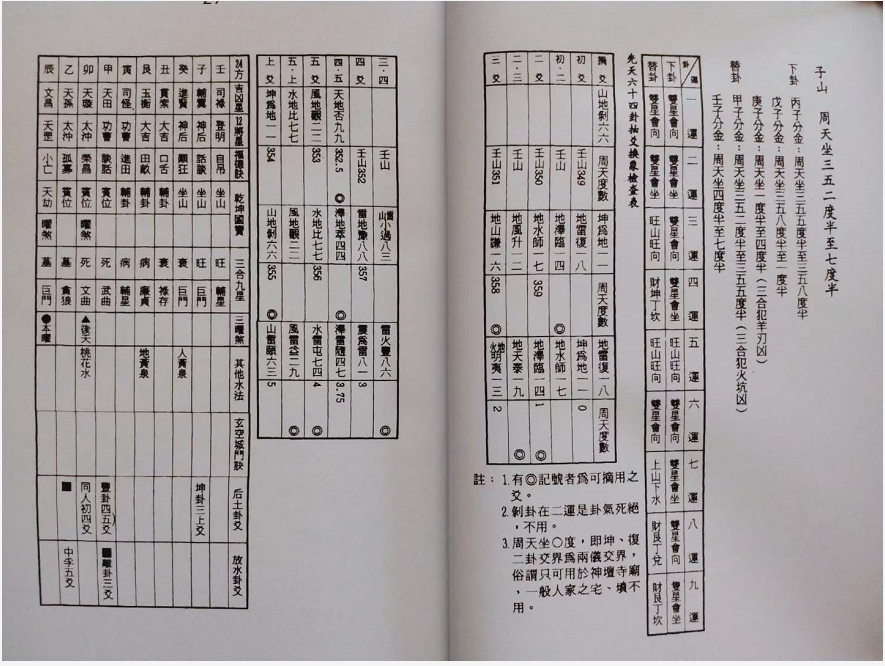 子山 周天坐三五二度半至七度半
下卦
丙子分金：周天坐三五五度半至三五八度半
戊子分金：周天坐三五八度半至一度半
庚子分金：周天坐一度半至四度半（三合犯羊刃凶）
替卦
甲子分金：周天坐三五二度半至三五五度半（三合犯火坑凶）
壬子分金：周天坐四度半至七度半
卦 運 一運 二運 三運 四運 五運 六運 七運 八運 九運
下卦 雙星會向 雙星會坐 雙星會向 雙星會坐 旺山旺向 雙星會向 雙星會坐 雙星會向 雙星會坐
替卦 雙星會向 雙星會坐 旺山旺向 財坤丁坎 旺山旺向 雙星會向 上山下水 財艮丁兌 財艮丁坎
先天六十四卦抽爻換象檢查表
摘爻 山地剝六六 周天度數 坤爲地一一 周天度數 地雷復一八 周天度數
初爻 壬山349 地雷復一八 坤爲地一一 0
初·二 壬山 地澤臨一四 ◎ 地水師一七
二爻 壬山350 地水師一七 359 地澤臨一四 1 ◎
二·三 壬山 地風升一二 地天泰一九 ◎
三爻 壬山351 地山謙一六 358 ◎ 地火明夷一三 2
註：1.有◎記號者爲可摘用之
爻。
2.剝卦在二運是卦氣死絕
，不用。
3.周天坐○度，即坤、復
二卦交界爲兩儀交界，
俗謂只可用於神壇寺廟
，一般人家之宅、墳不
用。
三·四 壬山 雷山小過八三 雷火豐八六 ◎
四爻 壬山352 雷地豫八八 357 震爲雷八一 3
四·五 天地否九九 352.5 ◎ 澤地萃四四 ◎ 澤雷隨四七 3.75
五爻 風地觀二二 353 水地比七七 356 ◎ 水雷屯七四 4 ◎
五·上 水地比七七 風地觀二二 風雷益二九 ◎
上爻 坤爲地一一 354 山地剝六六 355 ◎ 山雷頤六三 5
24方 吉凶星 12將星 福德訣 乾坤國寶 三合九星 三曜煞 其他水法 玄空城門訣 后土卦爻 放水卦爻
壬 司祿 登明 自吊 坐山 旺 輔星
子 輔翼 神后 話談 坐山 旺 巨門 坤卦三上爻
癸 進賢 神后 顚狂 坐山 衰 巨門 人黃泉
丑 貫索 大吉 口舌 輔卦 衰 祿存
艮 玉衡 大吉 田畝 輔卦 病 廉貞 地黃泉
寅 司怪 功曹 進田 輔卦 病 輔星
甲 天田 功曹 談話 賓位 死 武曲 豐卦四五爻 ■離卦三爻
卯 天璇 太沖 榮昌 賓位 曜煞 死 文曲 ▲後天 桃花水 同人初四爻
乙 天孫 太沖 孤寡 賓位 墓 貪狼 ■ 中孚五爻
辰 文昌 天罡 小亡 天劫 曜煞 墓 巨門 ●本曜